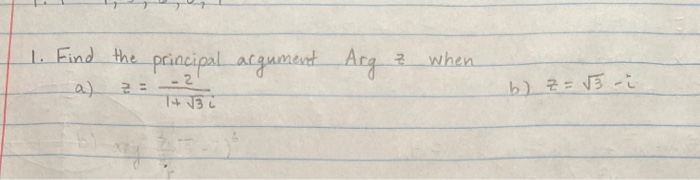 1. Find the principal argument Arg z when
a) z = -2 / 1+√3 i b) z = √3 - i